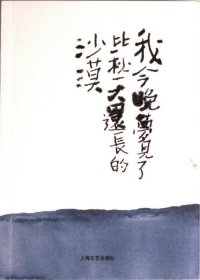 我今晚夢見了
比秋天還長的
沙漠
上海文艺出版社